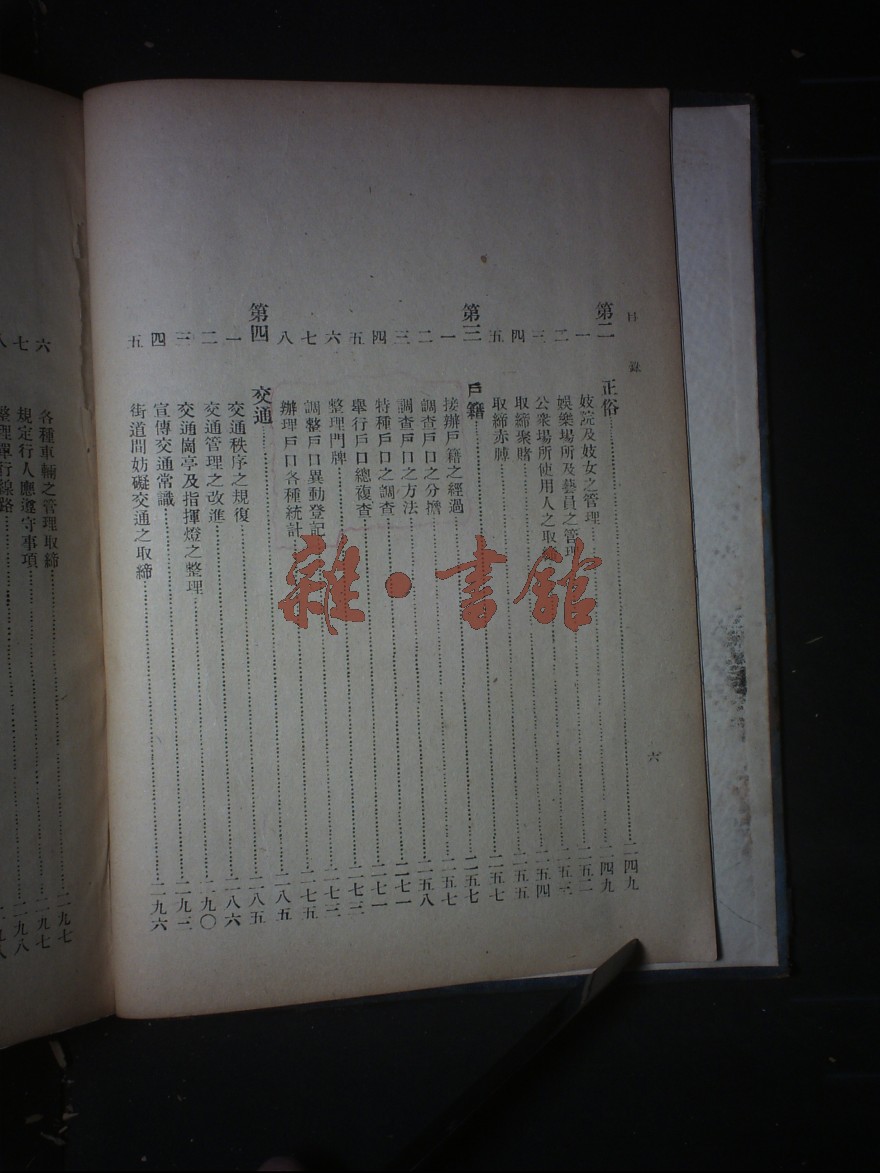 目錄 六
第二 正俗……二四九
一 妓院及妓女之管理……二四九
二 娛樂場所及藝員之管理……二五二
三 公衆場所使用人之取……二五三
四 取締聚賭……二五四
五 取締赤膊……二五五
第三 戶籍……二五七
一 接辦戶籍之經過……二五七
二 調查戶口之分擔……二五七
三 調查戶口之方法……二五八
四 特種戶口之調查……二七一
五 舉行戶口總複查……二七一
六 整理門牌……二七三
七 調整戶口異動登記……二七三
八 辦理戶口各種統計……二七五
第四 交通……二八五
一 交通秩序之規復……二八五
二 交通管理之改進……二八六
三 交通崗亭及指揮燈之整理……二九〇
四 宣傳交通常識……二九二
五 街道間妨礙交通之取締……二九六
六 各種車輛之管理取締……二九七
七 規定行人應遵守事項……二九七
八 整理單行線路……二九八
雜·書館